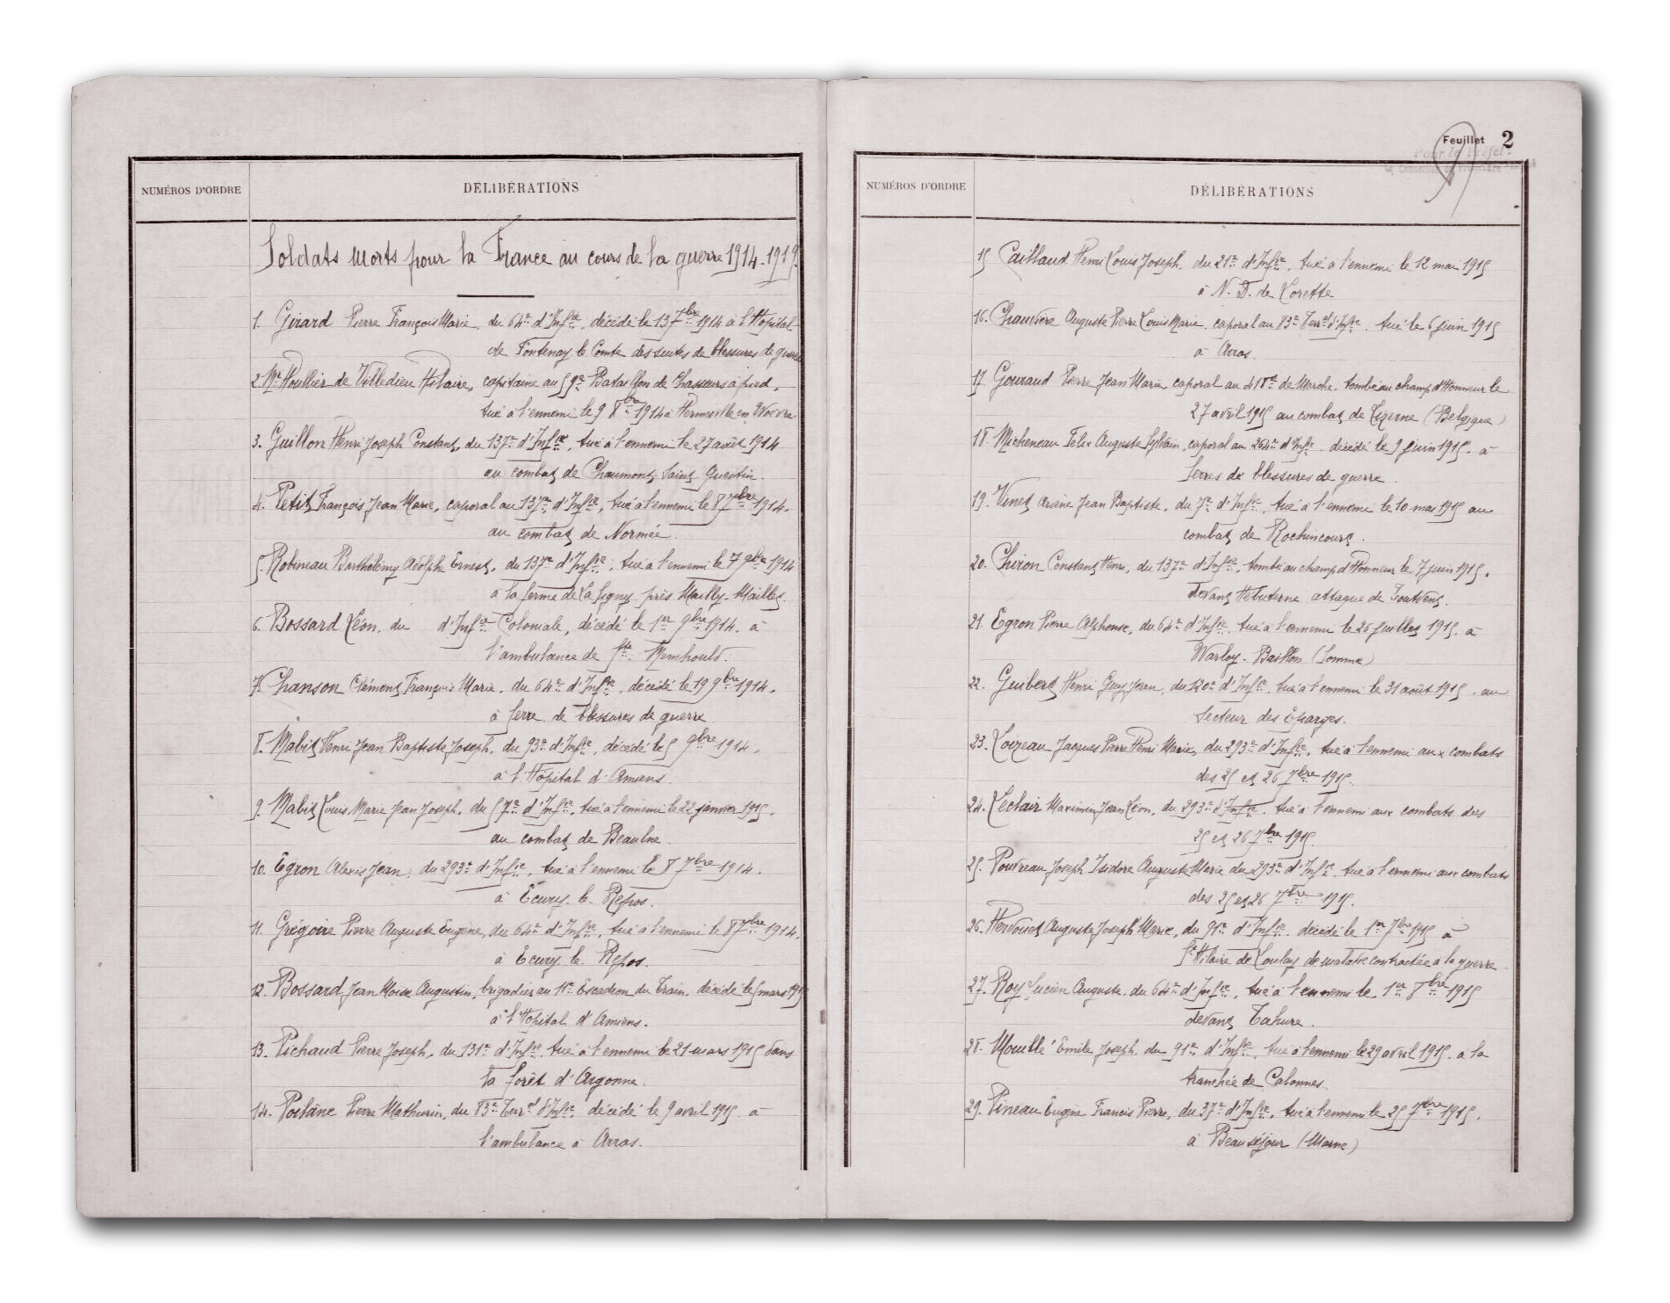 NUMÉROS D'ORDRE
DÉLIBÉRATIONS
Soldats morts pour la France au cours de la guerre 1914-1919.
1. Girard Pierre François Marie, du 64e d'Infie, décédé le 13 7bre 1914 à l'Hôpital
de Fontenay le Comte des suites de blessures de guerre
2. Mr Houllier de Villedieu Hilaire, capitaine au 59e Bataillon de Chasseurs à pied,
tué à l'ennemi le 9 8bre 1914 à Herméville en Woëvre
3. Guillon Henri Joseph Constant, du 137e d'Infie, tué à l'ennemi le 27 août 1914
au combat de Chaumont Saint Quentin.
4. Petit François Jean Marie, caporal au 137e d'Infie, tué à l'ennemi le 8 7bre 1914.
au combat de Normée.
5. Robineau Barthélemy Adolphe Ernest, du 137e d'Infie, tué à l'ennemi le 7 9bre 1914
à la ferme de La Signy près Mailly-Maillet.
6. Bossard Léon, du d'Infie Coloniale, décédé le 1er 9bre 1914. à
l'ambulance de Ste Menehould.
7. Chanson Clément François Marie, du 64e d'Infie, décédé le 19 9bre 1914.
à Serre de blessures de guerre
8. Mabit Henri Jean Baptiste Joseph, du 93e d'Infie, décédé le 5 9bre 1914.
à l'Hôpital d'Amiens.
9. Mabit Louis Marie Jean Joseph, du 57e d'Infie, tué à l'ennemi le 22 janvier 1915.
au combat de Beaulne
10. Egron Alexis Jean, du 293e d'Infie, tué à l'ennemi le 8 7bre 1914.
à Ecury le Repos.
11. Grégoire Pierre Auguste Eugène, du 64e d'Infie, tué à l'ennemi le 8 7bre 1914.
à Ecury le Repos.
12. Bossard Jean Moïse Augustin, brigadier au 11e Escadron du Train, décédé le 5 mars 1915
à l'Hôpital d'Amiens.
13. Pichaud Pierre Joseph, du 131e d'Infie, tué à l'ennemi le 21 mars 1915 dans
la forêt d'Argonne.
14. Poslâne Pierre Mathurin, du 83e Terral d'Infie, décédé le 9 avril 1915. à
l'ambulance à Arras.
Feuillet 2
Pour le Préfet
NUMÉROS D'ORDRE
DÉLIBÉRATIONS
15 Caillaud Henri Louis Joseph, du 21e d'Infie, tué à l'ennemi le 12 mai 1915
à N. D. de Lorette
16. Chauvière Auguste Pierre Louis Marie, caporal au 83e Terral d'Infie, tué le 6 juin 1915
à Arras.
17. Gouraud Pierre Jean Marie, caporal au 418e de Marche, tombé au champ d'Honneur le
27 avril 1915 au combat de Lizerne (Belgique)
18. Micheneau Félix Auguste Sylvain, caporal au 264e d'Infie, décédé le 9 juin 1915. à
Serres de blessures de guerre
19. Vinet Arsène Jean Baptiste, du 7e d'Infie, tué à l'ennemi le 10 mai 1915 au
combat de Rochincourt.
20. Chiron Constant Henri, du 137e d'Infie, tombé au champ d'Honneur le 7 juin 1915.
devant Hébuterne attaque de Toutvent.
21. Egron Pierre Alphonse, du 64e d'Infie, tué à l'ennemi le 26 juillet 1915. à
Warloy-Baillon (Somme)
22. Guibert Henri Guy Jean, du 120e d'Infie, tué à l'ennemi le 31 août 1915. au
Secteur des Eparges.
23. Loizeau Jacques Pierre Henri Marie, du 293e d'Infie, tué à l'ennemi aux combats
des 25 et 26 7bre 1915.
24. Leclair Maximin Jean Léon, du 293e d'Infie, tué à l'ennemi aux combats des
25 et 26 7bre 1915.
25. Pouvreau Joseph Isidore Auguste Marie du 293e d'Infie, tué à l'ennemi aux combats
des 25 et 26 7bre 1915.
26. Hervouet Auguste Joseph Marie, du 91e d'Infie, décédé le 1er 7bre 1915 à
St Hilaire de Loulay de maladie contractée à la guerre
27. Roy Lucien Auguste, du 64e d'Infie, tué à l'ennemi le 1er 8bre 1915
devant Tahure.
28. Mouillé Emile Joseph, du 91e d'Infie, tué à l'ennemi le 29 avril 1915. à la
tranchée de Calonnes.
29. Pineau Eugène Francis Pierre, du 37e d'Infie, tué à l'ennemi le 25 7bre 1915.
à Beauséjour (Marne)